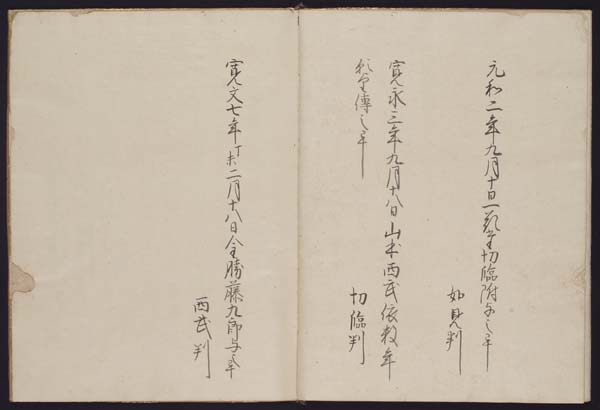 元和二年九月十日一華堂切臨附与之畢
如見判
寛永三年九月十八日山本西武依数年
懇望傳之畢
切臨判
寛文七年丁未二月十八日令勝藤九郎与之畢
西武判